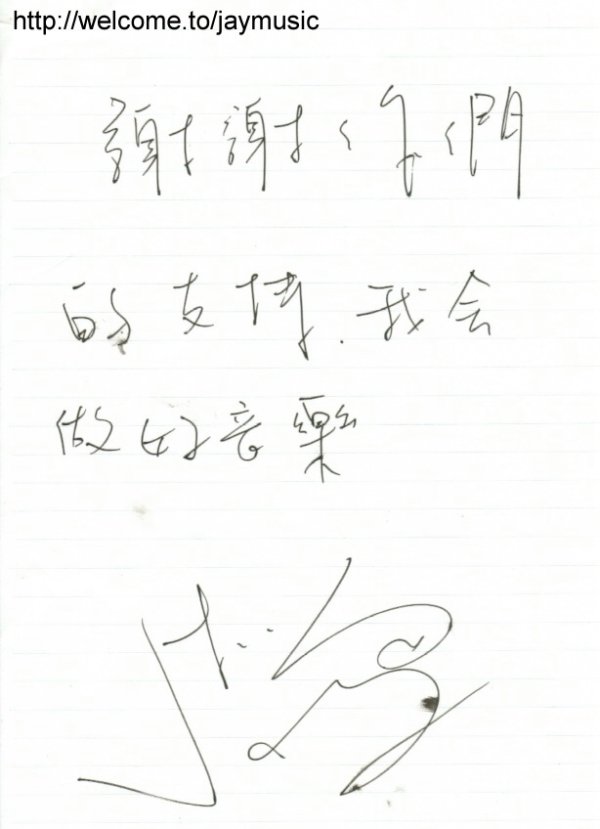 http://welcome.to/jaymusic
謝謝你們
的支持.我会
做好音樂